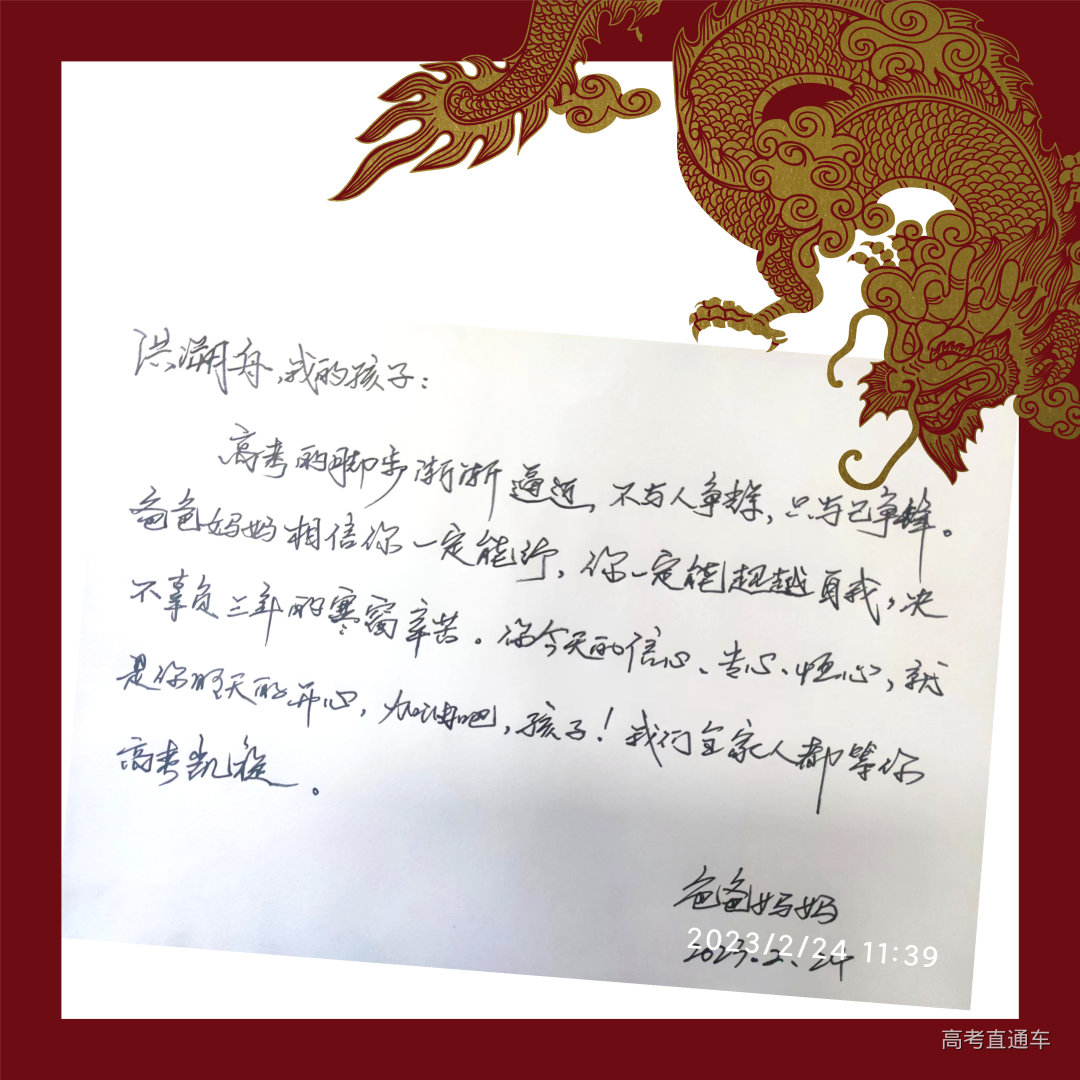 洪溯舟,我的孩子:
高考的脚步渐渐逼近,不与人争锋,只与己争锋。
爸爸妈妈相信你一定能行,你一定能超越自我,决
不辜负三年的寒窗辛苦。你今天的信心、专心、恒心,就
是你明天的开心,加油吧,孩子!我们全家人都等你
高考凯旋。
爸爸妈妈
2023/2/24 11:39
2023.2.24
高考直通车